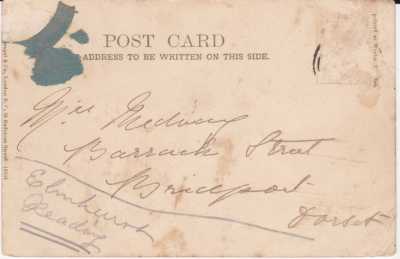 POST CARD
ADDRESS TO BE WRITTEN ON THIS SIDE.
Miss Medway
Barrack Street
Bridport
Dorset
Elmhurst
Reading